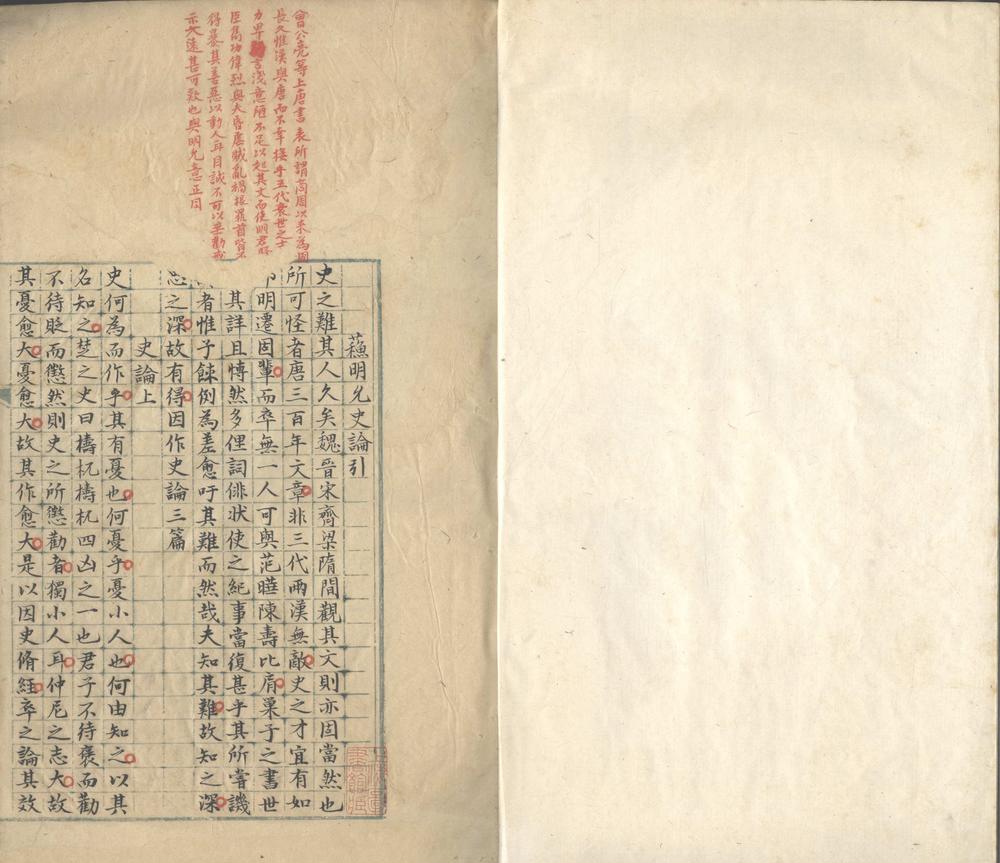 曾公亮等上唐書表所謂商周以來為國
長久惟漢與唐而不幸接乎五代衰世之士
力卑言淺意陋不足以起其文而使明君賢
臣雋功偉烈與夫昏虐賊亂禍根罪首皆不
得暴其善惡以動人耳目誠不可以垂勸戒
示久遠甚可歎也與明允意正同
蘓明允史論引
史之難其人久矣魏晉宋齊梁隋間觀其文則亦固當然也
所可怪者唐三百年文章非三代兩漢無敵史之才宜有如
丘明遷固輩而卒無一人可與范曄陳壽比肩巢子之書世
其詳且愽然多俚詞俳狀使之紀事當復甚乎其所嘗譏
者惟子餗例為差愈吁其難而然哉夫知其難故知之深
思之深故有得因作史論三篇
史論上
史何為而作乎其有憂也何憂乎憂小人也何由知之以其
名知之楚之史曰檮杌檮杌四凶之一也君子不待褒而勸
不待貶而懲然則史之所懲勸者獨小人耳仲尼之志大故
其憂愈大憂愈大故其作愈大是以因史脩經卒之論其效